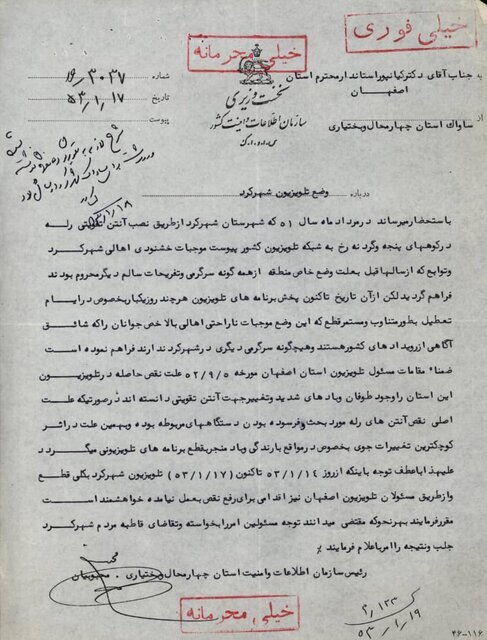 خیلی فوری
خیلی محرمانه
به جناب آقای دکتر کیانپور استاندار محترم استان
اصفهان
از ساواک استان چهارمحال و بختیاری
نخست وزیری
سازمان اطلاعات و امنیت کشور
س.ا.و.ا.ک
شماره ۳۰۳۷
تاریخ ۵۳/۱/۱۷
پیوست
۵۳/۱/۱۸
درباره وضع تلویزیون شهرکرد
باستحضار میرساند در مرداد ماه سال ۵۱ که شهرستان شهرکرد از طریق نصب آنتن تقویتی رله
در کوههای پنجه وگرد نه رخ به شبکه تلویزیون کشور پیوست موجبات خشنودی اهالی شهرکرد
وتوابع که ازسالها قبل بعلت وضع خاص منطقه ازهمه گونه سرگرمی وتفریحات سالم دیگر محروم بودند
فراهم گردید لکن از آن تاریخ تاکنون پخش برنامه های تلویزیون هر چند روز یکبار بخصوص در ایام
تعطیل بطور متناوب ومستمر قطع که این وضع موجبات ناراحتی اهالی بالاخص جوانان را که شائق
آگاهی از رویداد های کشور هستند وهیچگونه سرگرمی دیگری در شهرکرد ندارند فراهم نموده است
ضمناً مقامات مسئول تلویزیون استان اصفهان مورخه ۵۲/۹/۵ علت نقص حاصله در تلویزیون
این استان را وجود طوفان وباد های شدید وتغییر جهت آنتن تقویتی دانسته اند در صورتیکه علت
اصلی نقص آنتن های رله مورد بحث وفرسوده بودن دستگاههای مربوطه بوده وبهمین علت در اثر
کوچکترین تغییرات جوی بخصوص در مواقع بارندگی وباد منجر بقطع برنامه های تلویزیونی میگردد
علیهذا با عطف توجه باینکه از روز ۵۳/۱/۱۴ تاکنون (۵۳/۱/۱۷) تلویزیون شهرکرد بکلی قطع
واز طریق مسئولان تلویزیون اصفهان نیز اقدامی برای رفع نقص بعمل نیامده خواهشمند است
مقرر فرمایند بهر نحو که مقتضی میدانند توجه مسئولین امر را بخواسته وتقاضای قاطبه مردم شهرکرد
جلب ونتیجه را امر باعلام فرمایند ٪
رئیس سازمان اطلاعات وامنیت استان چهارمحال وبختیاری . محبوبیان
خیلی محرمانه
۲٫۱۲۳
۵۳/۱/۱۹
۴۶-۱۱۶